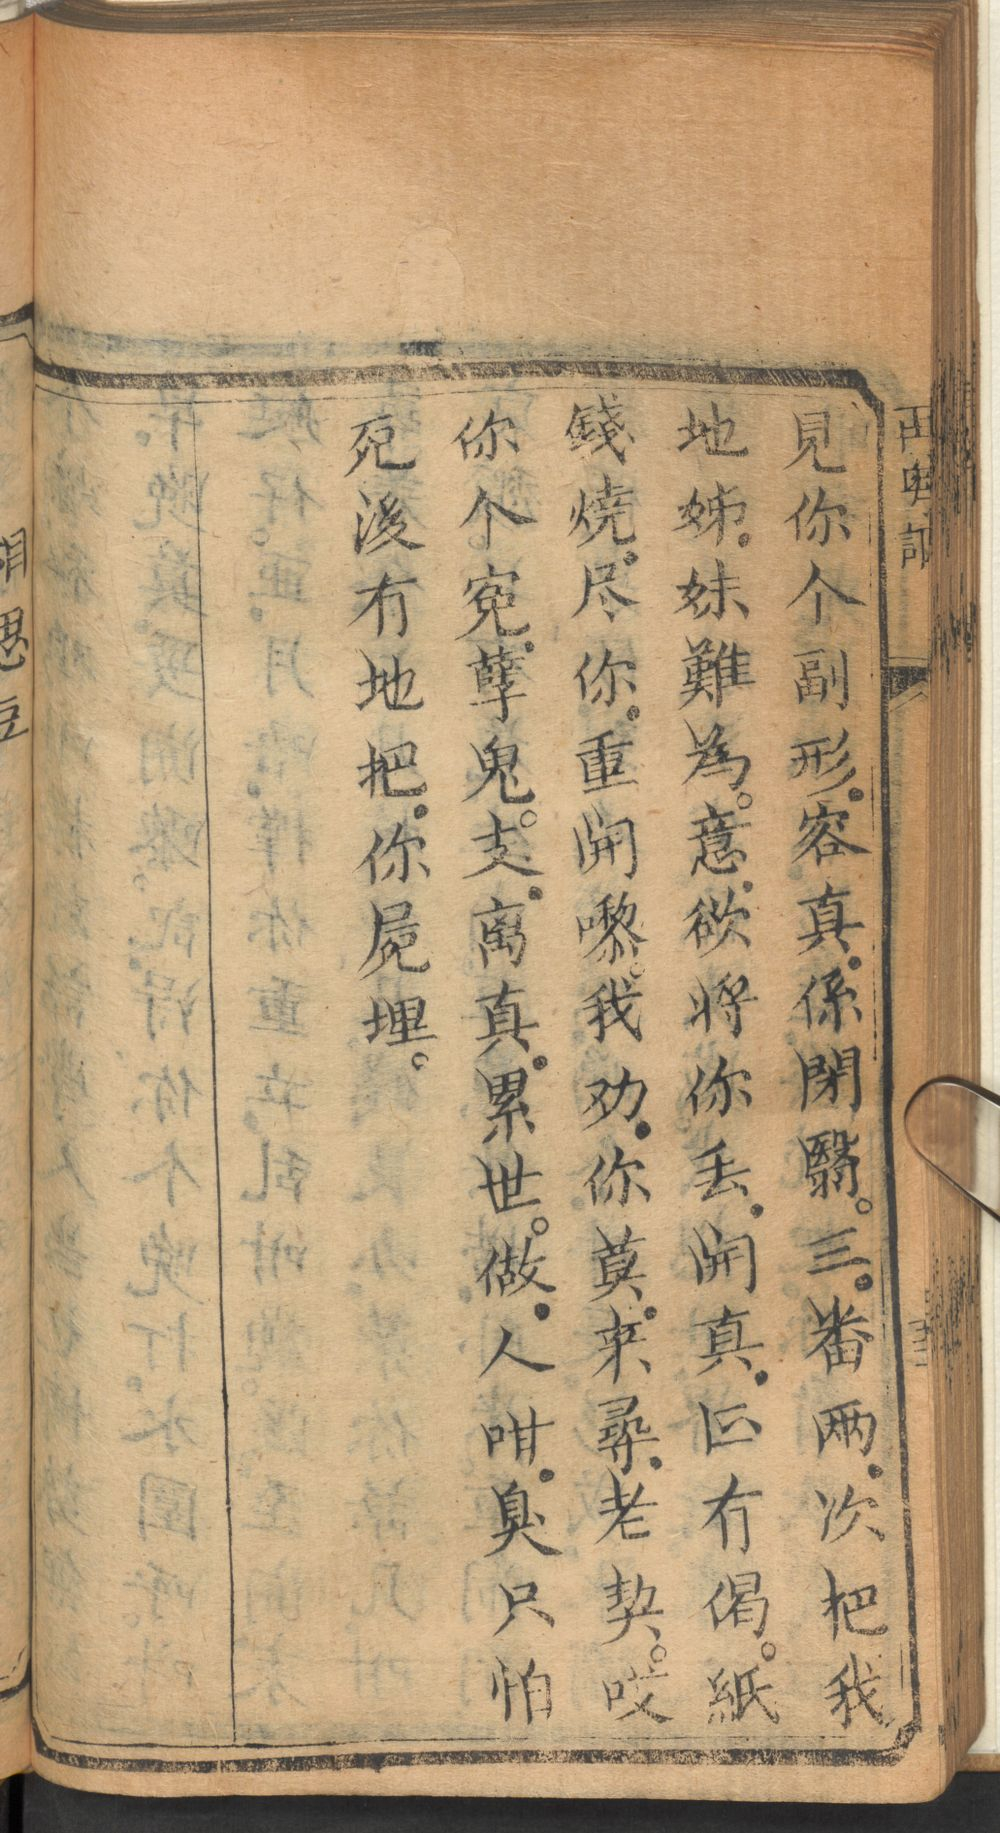 見你个副形.容真.係閉翳。三.番兩.次把我
地姊.妹難為。意.欲将你丢.開真.正冇偈。紙
錢燒.尽你.重開嚟。我劝.你莫.来尋.老契。哎
你个寃.孽鬼。支.离真.累世。做.人咁.臭只怕
死後冇地把.你屍埋。
相思